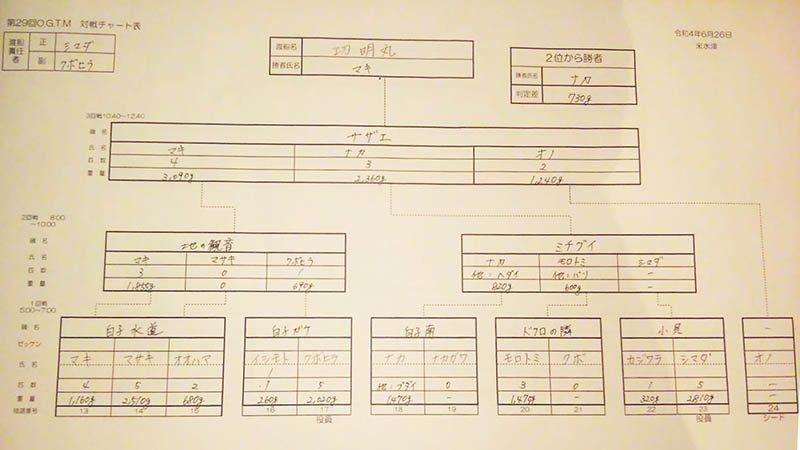 第29回O.G.T.M 対戦チャート表
令和4年6月26日
米水津
渡船責任者 正 シマダ
副 クボヒラ
渡船名 功明丸
勝者氏名 マキ
2位から勝者
勝者氏名 ナカ
判定差 730g
3回戦10:40~12:40
磯名 サザエ
氏名 マキ ナカ オノ
匹数 4 3 2
重量 3,090g 2,360g 1,240g
2回戦 8:00~10:00
磯名 地の観音 ミチグイ
氏名 マキ マサキ クボヒラ ナカ モロトミ シマダ
匹数 3 0 1 他・ヘダイ 他・バリ -
重量 1,855g 0 690g 820g 600g -
1回戦
5:00~7:00
磯名 白子水道 白子ガケ 白子南 ドクロの隣 小見 -
ゼッケン
氏名 マキ マサキ オオハマ イシモト クボヒラ ナカ ナカガワ モロトミ クボ カジワラ シマダ オノ
匹数 4 5 2 1 5 他・ブダイ 0 3 0 1 5 -
重量 1,160g 2,510g 680g 260g 2,020g 1,470g - 1,475g - 320g 2,810g -
抽選番号 13 14 15 16 17 18 19 20 21 22 23 24
役員 役員 シード